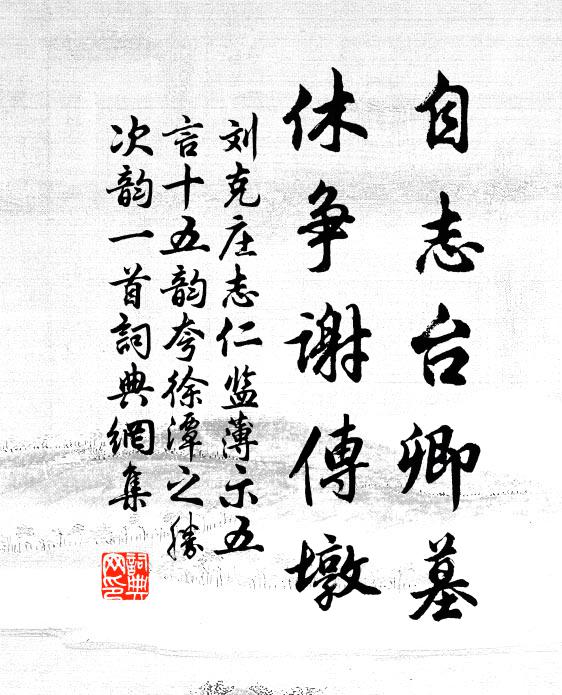 自志台卿墓
休争谢傳墩
刘克庄志仁监薄示五
言十五韵夸徐潭之勝
次韵一首詞典網集
詞典網印